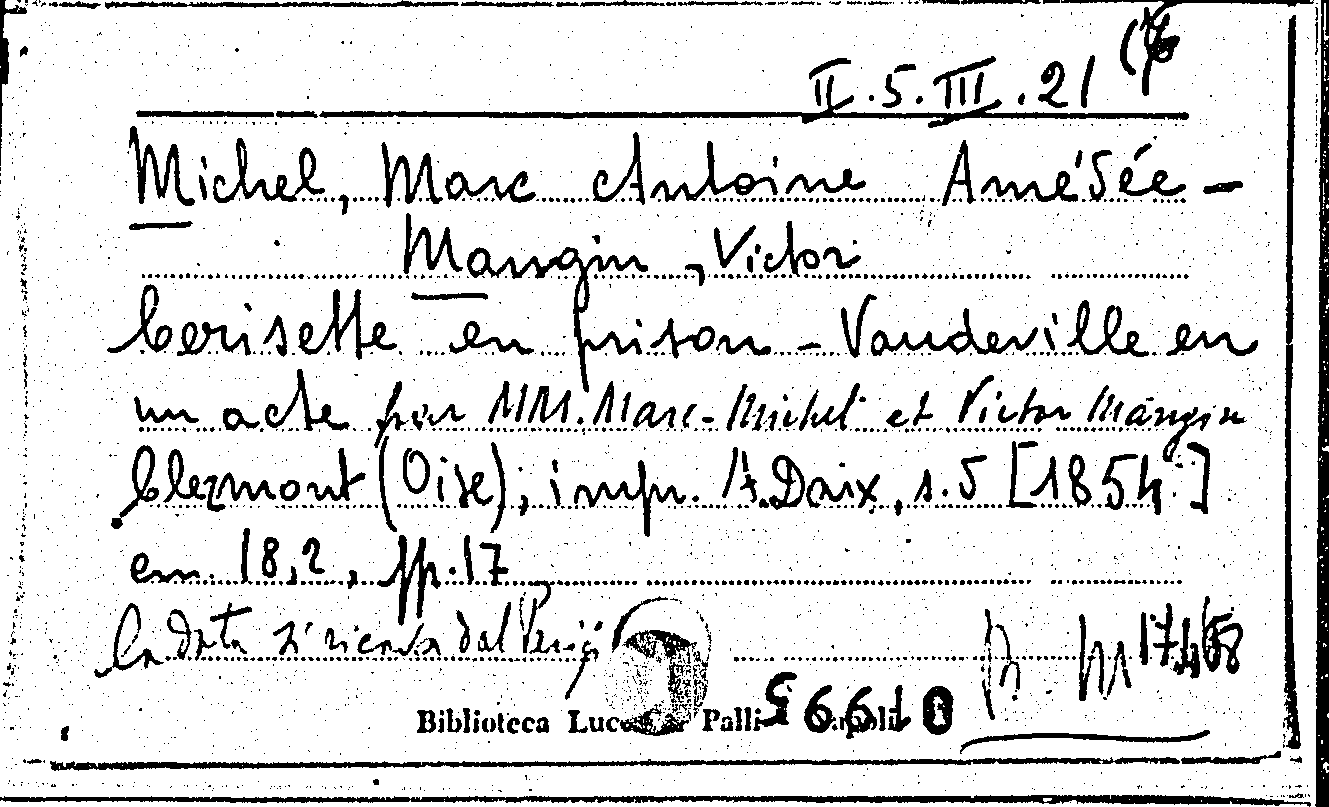 II.5.III.21 (6
Michel, Marc Antoine Amédée -
Mangin, Victor
Cerisette en prison - Vaudeville en
un acte par MM. Marc-Michel et Victor Mangin
Clermont (Oise), impr. A. Daix, s.d [1854]
cm. 18,2, pp. 17
La data si ricava dal
Biblioteca Palli 56610